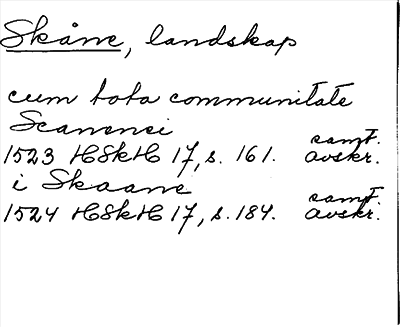 Skåne, landskap
cum tota communitate
Scanensi
1523 HSkH 17, s. 161. samt. avskr.
i Skaane
1524 HSkH 17, s. 184. samt. avskr.